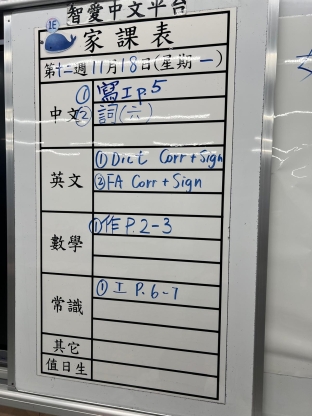 智愛中文平台
1E
家課表
第十二週11月18日(星期一)
中文
①寫工p.5
②詞(六)
英文
①Dict Corr + Sign
②FA Corr + Sign
數學
①作 P.2-3
常識
①工 P.6-7
其它
值日生